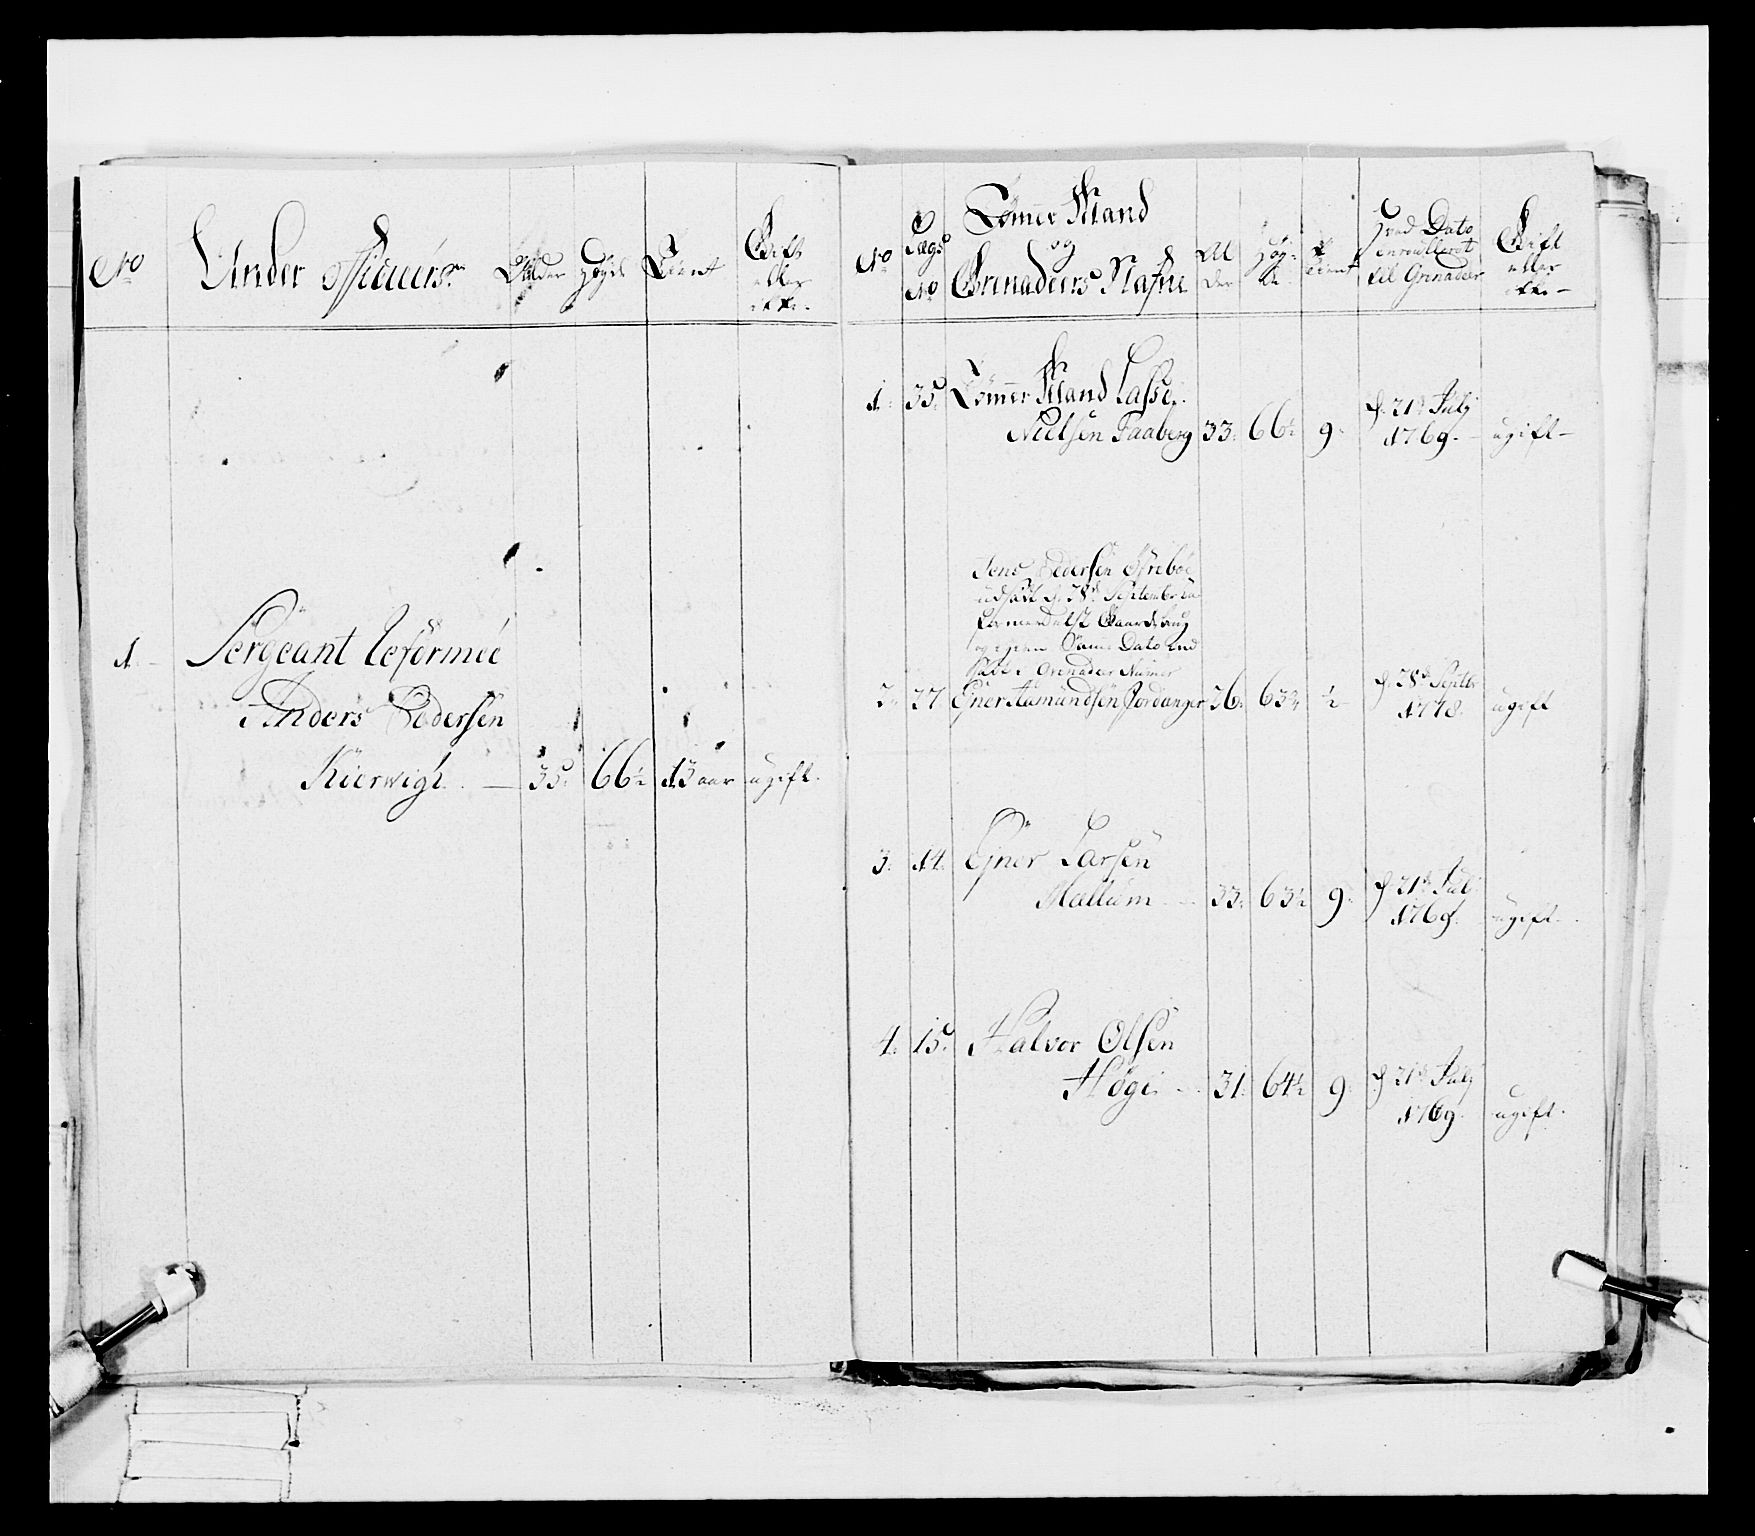 No
Under Officiers
Alder
Høyde
Tient
Gift
eller
ikke.
1
Sergeant Reformeé
Anders Pedersen
Kierwigh. — 35. 66½ 13 aar ugift.
No
Lægs
No
Tömer Mand
og
Grenadeers Nafne
Al
der
Høy-
de.
Tient
Hvad Dato
enroulleret
til Grenadeer
Gift
eller
ikke —
1. 35. Tömer Mand Lasse
Nielsen Faaberg 33. 66½ 9.
d. 21de Julj
1769. — ugift —
Jens Pedersen
udsatt d. 28de Septembr
formedelst
og igien Same Dato ind
satt i Grenadeer Numer
2. 27 Ejner Aamundsen Jordanger 26. 63¾ ½
d. 28de Septbr
1778. ugift
3. 14. Ejner Larsen
Mallum — 33. 63½ 9.
d. 21de Julj
1769. ugift.
4. 15. Halvor Olsen
Høge — 31. 64½ 9.
d. 21de Julj
1769. ugift.